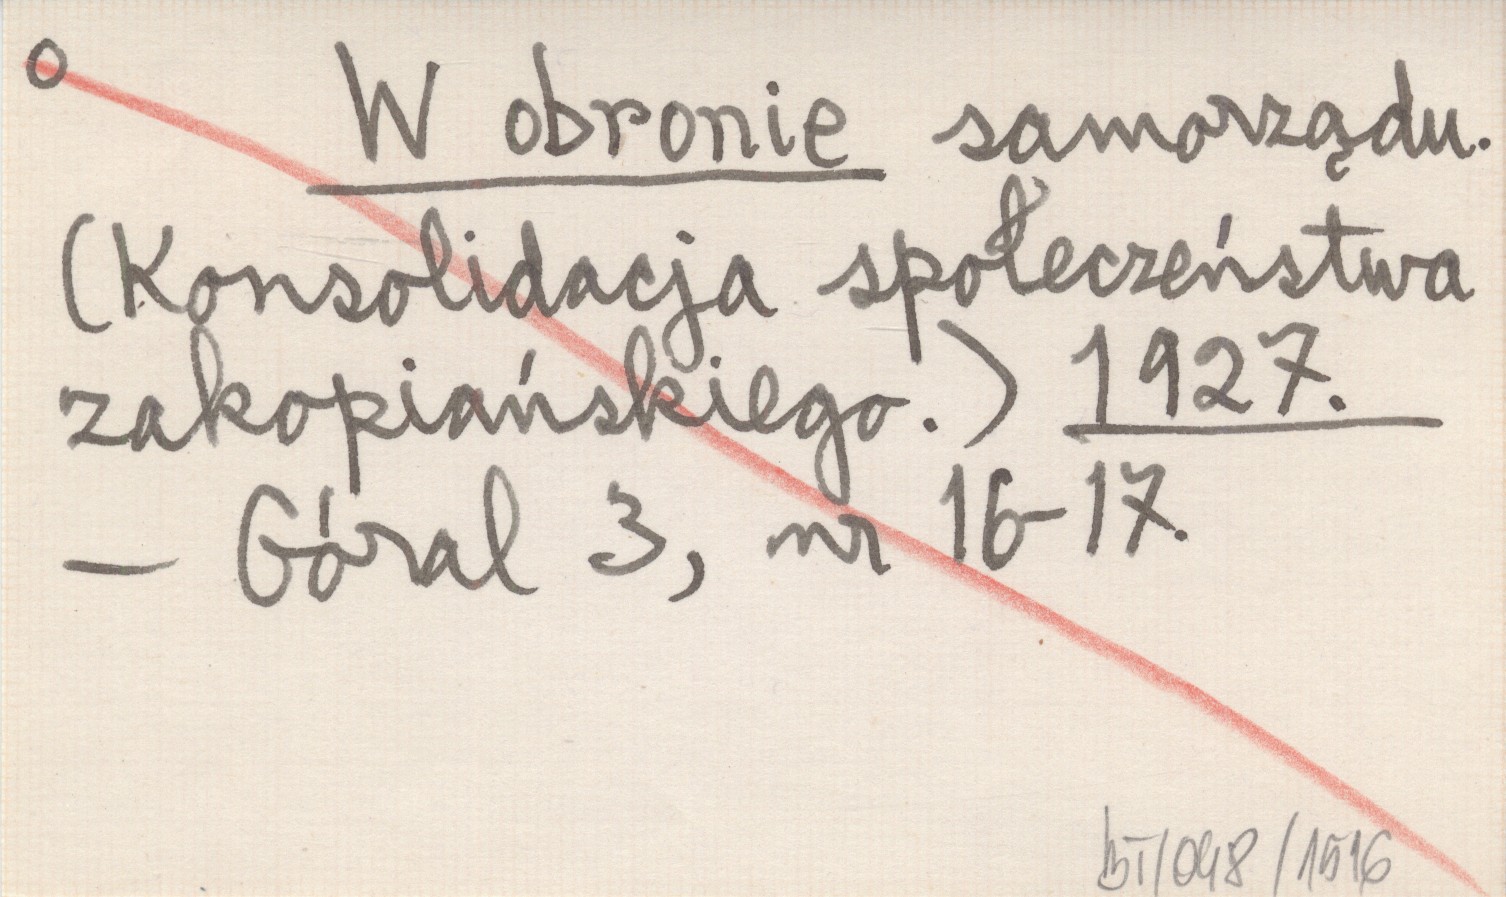 o W obronie samorządu.
(Konsolidacja społeczeństwa
zakopiańskiego.) 1927.
— Góral 3, nr 16-17.
BT/048/1516